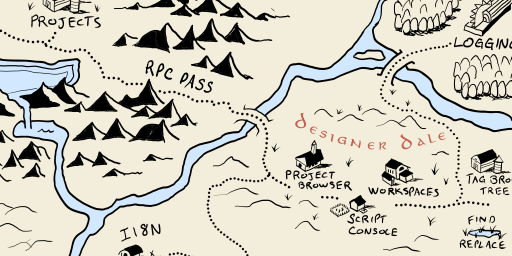 PROJECTS
LOGGING
RPC PASS
Designer Dale
PROJECT
BROWSER
WORKSPACES
TAG BRO
TREE
SCRIPT
CONSOLE
FIND
REPLACE
I18N